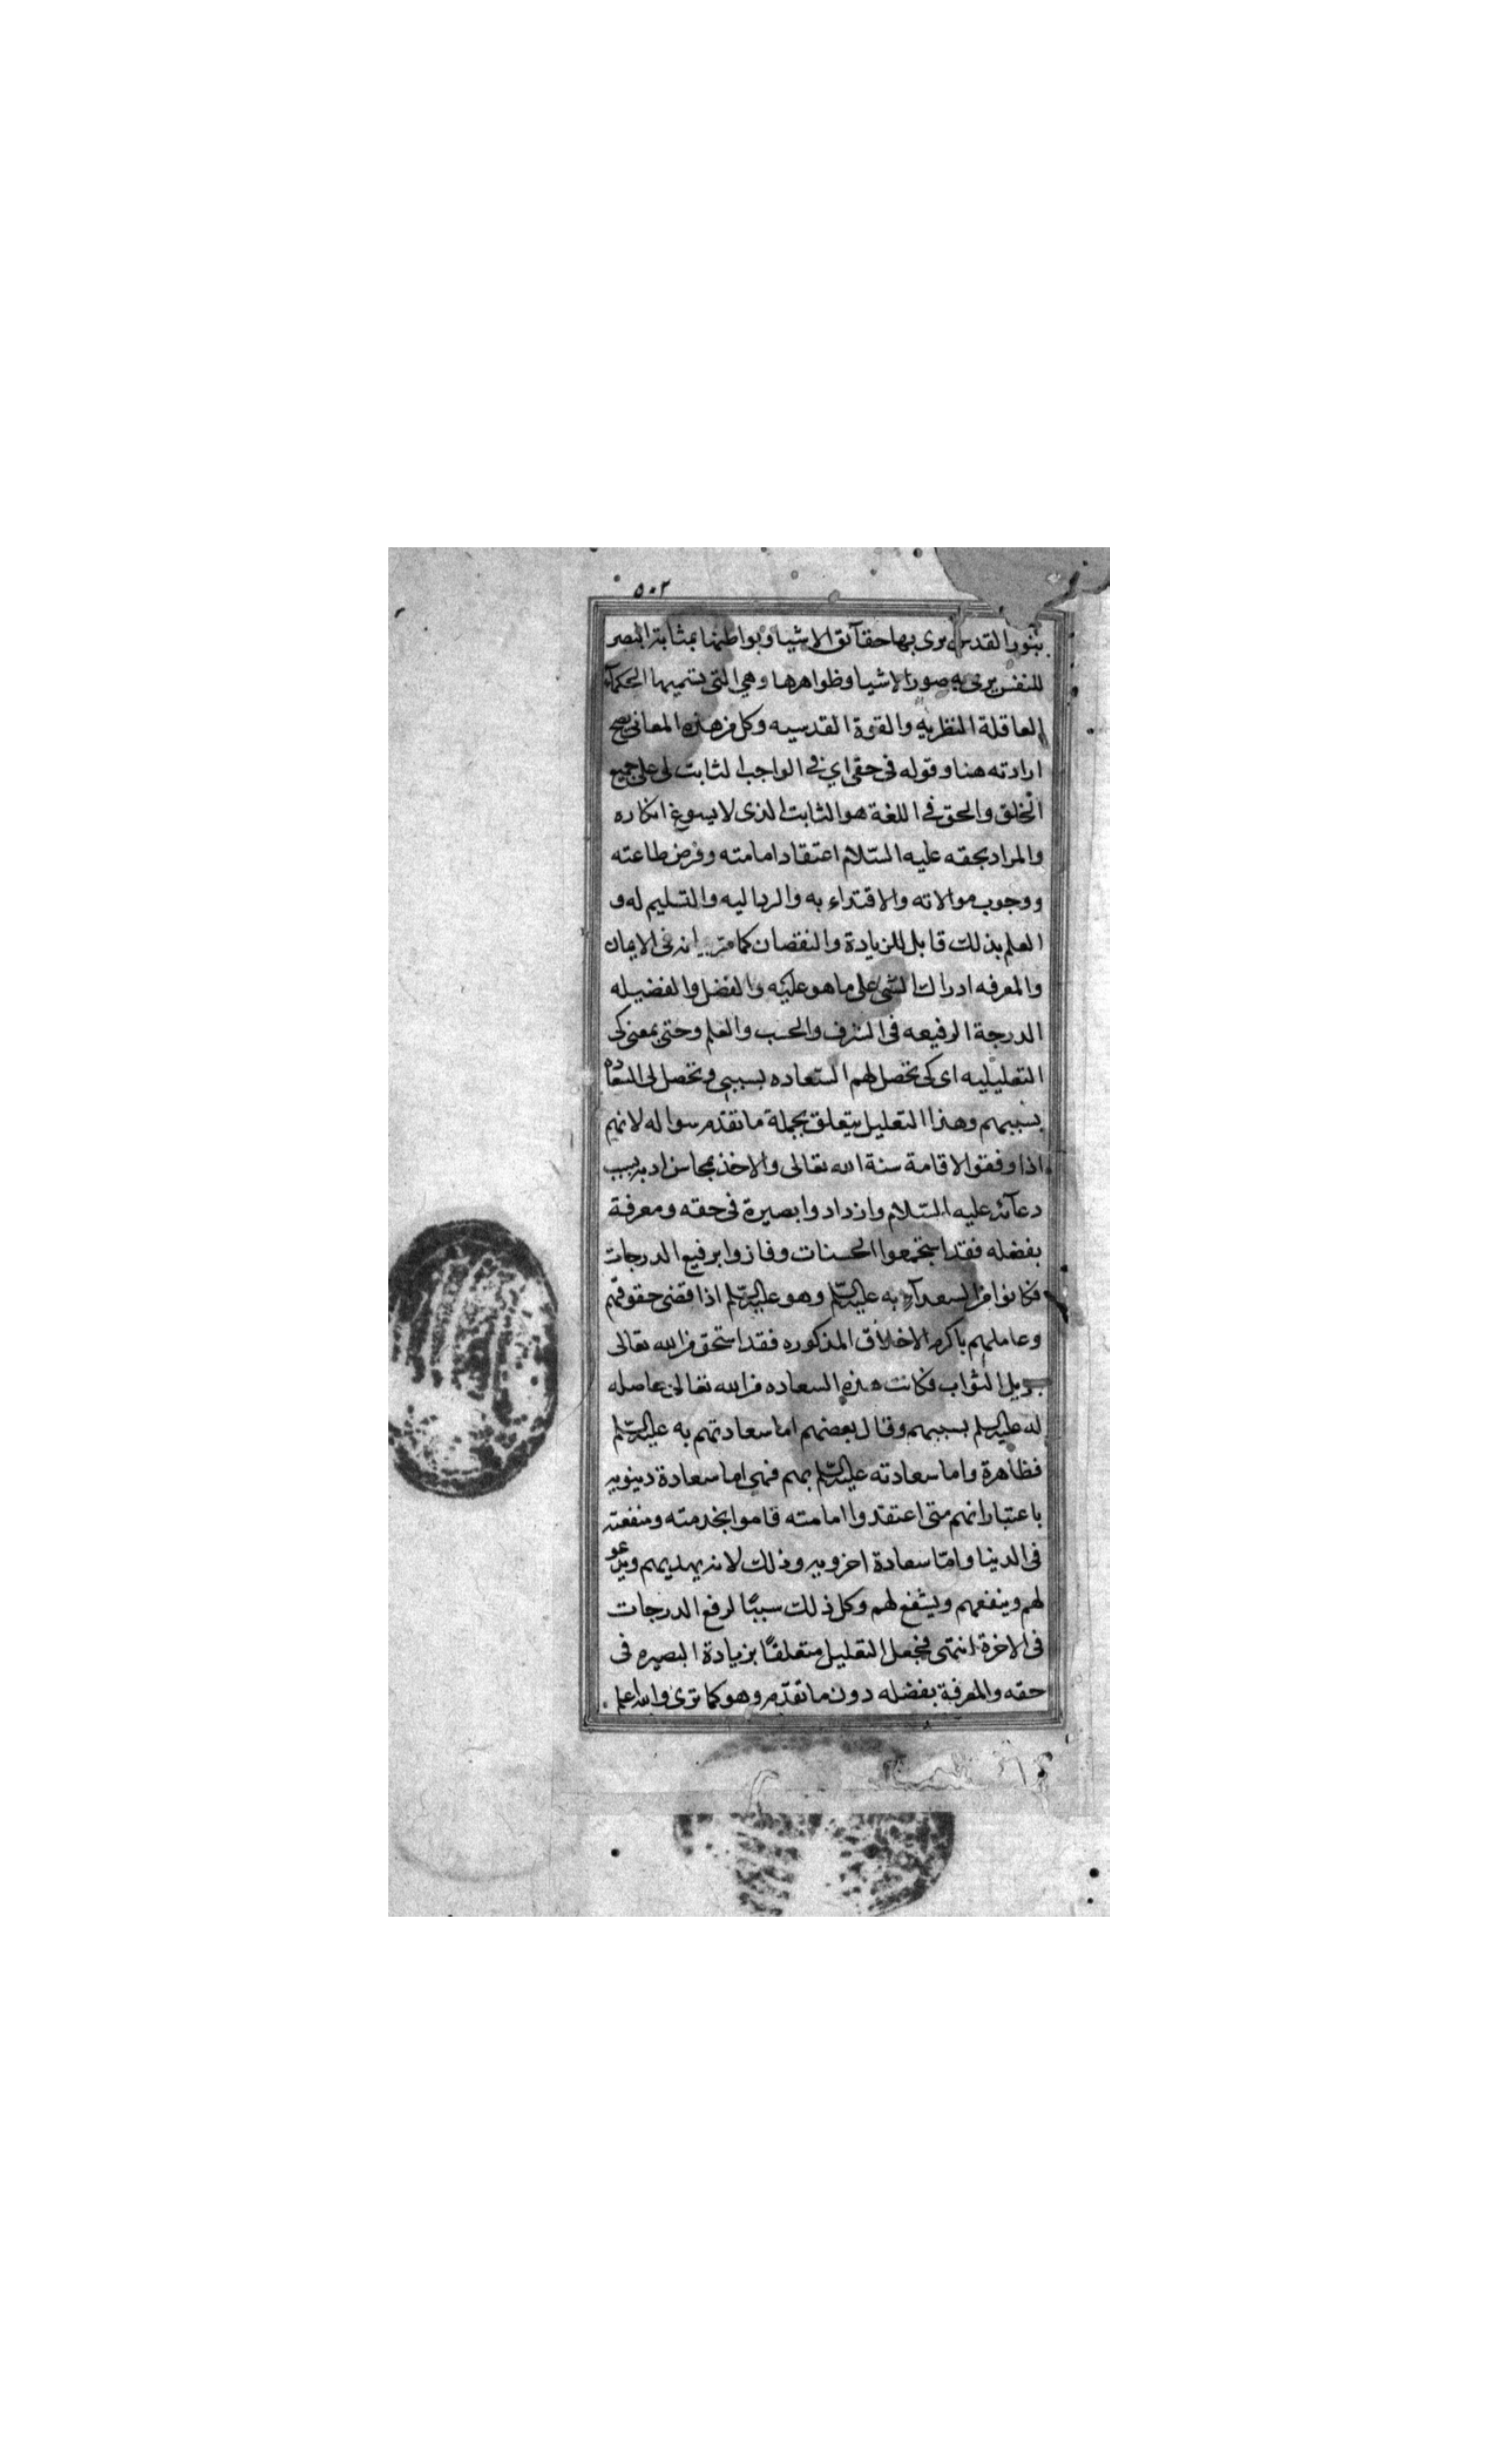 ٥٠٢
بنور القدس يرى بها حقآئق الاشيا وبواطنها بمثابة البصر
للنفس يرى به صور الاشيا وظواهرها وهي التي يسميها الحكمآء
العاقلة النظريه والقوة القدسيه وكل من هذه المعاني يصح
ارادته هنا وقوله في حقي اي في الواجب الثابت لي على جميع
الخلق والحق في اللغة هو الثابت الذي لا يسوغ انكاره
والمراد بحقه عليه السّلام اعتقاد امامته وفرض طاعته
ووجوب موالاته والاقتداء به والرد اليه والتسليم له و
العلم بذلك قابل للزيادة والنقصان كما مر بيانه في الايمان
والمعرفه ادراك الشي على ما هو عليه والفضل والفضيله
الدرجة الرفيعه في الشرف والحسب والعلم وحتى بمعنى كي
التعليليه اى كي تحصل لهم السّعاده بسببي وتحصل لي السعاده
بسببهم وهذا التعليل يتعلق بجملة ما تقدم سواله لانهم
اذا وفقوا لاقامة سنة الله تعالى والاخذ بمحاسن ادبه بسبب
دعآئه عليه السّلام وازدادوا بصيرة في حقه ومعرفة
بفضله فقد استجمعوا الحسنات وفازوا برفيع الدرجات
فكانوا من السعدآء به عليه السّلم وهو عليه السّلم اذا قضى حقوقهم
وعاملهم باكرم الاخلاق المذكوره فقد استحق من الله تعالى
جزيل الثواب فكانت هذه السعاده من الله تعالى حاصله
له عليه السلم بسببهم وقال بعضهم اما سعادتهم به عليه السّلم
فظاهرة واما سعادته عليه السّلم بهم فهي اما سعادة دينويه
باعتبار انهم متى اعتقدوا امامته قاموا بخدمته ومنفعته
في الدينا وامّا سعادة اخرويه وذلك لانه يهديهم ويدعو
لهم وينفعهم ويشفع لهم وكل ذلك سببًا لرفع الدرجات
في الاخرة انتهى فجعل التعليل متعلقًا بزيادة البصيره في
حقه والمعرفة بفضله دون ما تقدّم وهو كما ترى والله اعلم